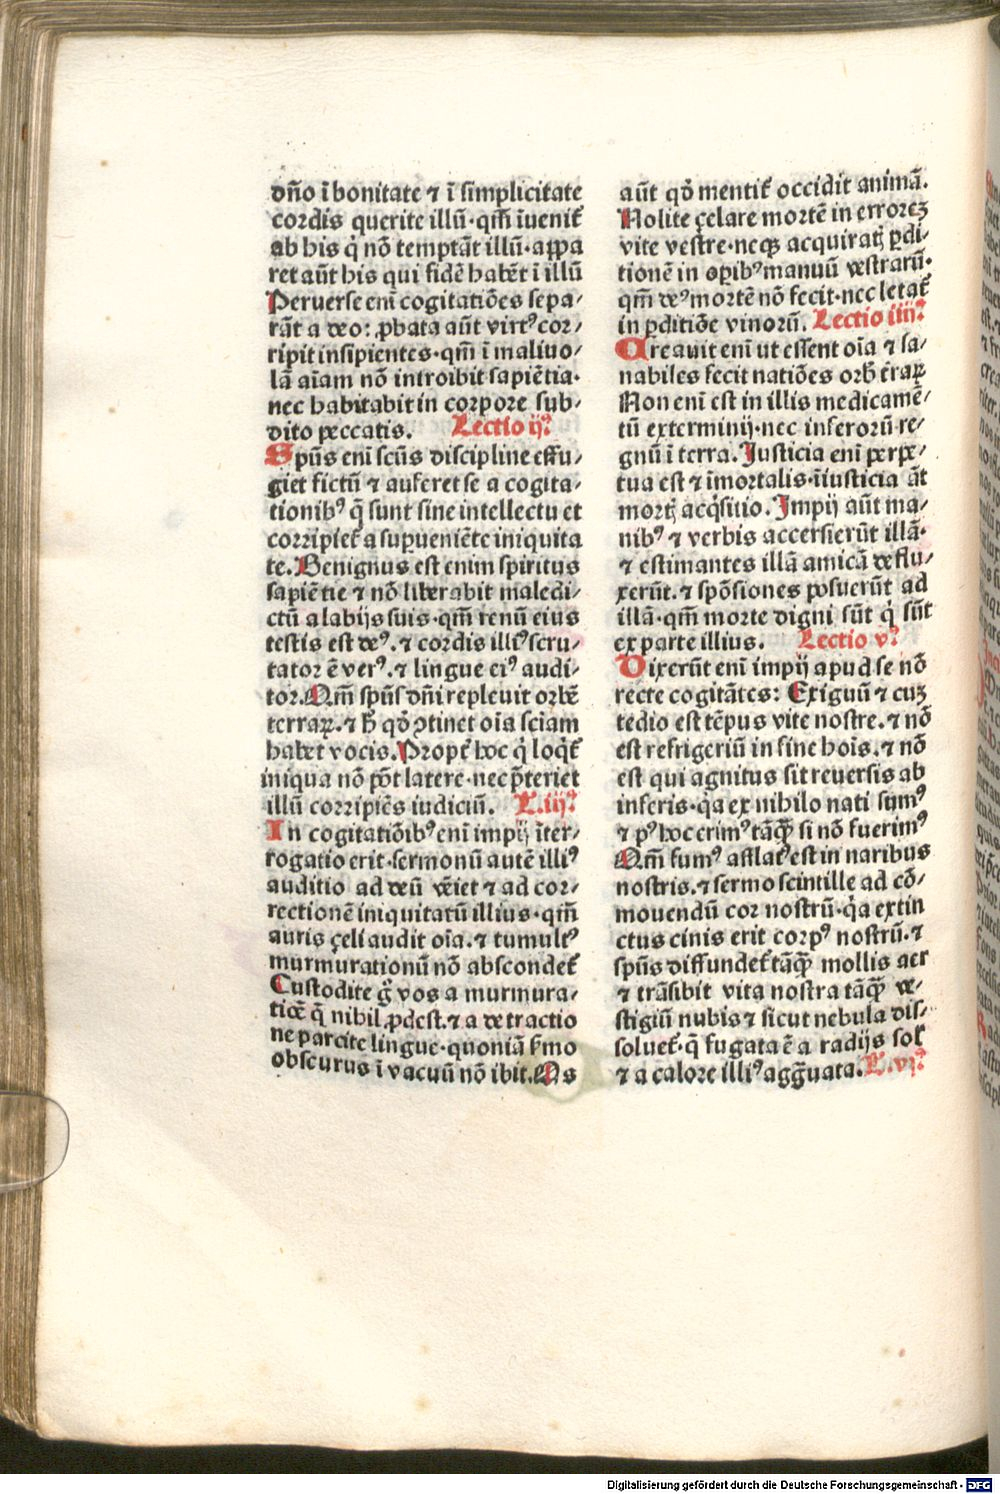 dño ī bonitate ⁊ ī simplicitate
cordis querite illū · qm̄ īuenit̄
ab his q̇ nō temptāt illū · appa
ret aūt his qui fidē habēt ī illū
Peruerse enī cogitatiōes sepa⸗
rāt a deo: ꝓbata aūt virtꝰ cor⸗
ripit insipientes · qm̄ ī maliuo⸗
lā aīam nō introibit sapiētia ·
nec habitabit in corpore sub⸗
dito peccatis. Lectio ij?
Spūs enī scūs discipline effu⸗
giet fictū ⁊ auferet se a cogita⸗
tionibꝰ q̄ sunt sine intellectu et
corripiet̄ a suꝑueniēte iniquita
te. Benignus est enim spiritus
sapiētie ⁊ nō liberabit maledi⸗
ctū a labijs suis · qm̄ renū eius
testis est deꝰ . ⁊ cordis illiꝰ scru⸗
tator ē verꝰ . ⁊ lingue eiꝰ audi⸗
tor. Qm̄ spūs dñi repleuit orbē
terraꝝ . ⁊ h̄ qď ꝯtinet oīa sciam
habet vocis. Propt̄ hoc q̇ loqt̄
iniqua nō pōt latere · nec p̄teriet
illū corripiēs iudiciū. L. iij?
In cogitatiōibꝰ enī impij īter⸗
rogatio erit · sermonū autē illiꝰ
auditio ad deū veīet ⁊ ad cor⸗
rectionē iniquitatū illius · qm̄
auris çeli audit oīa . ⁊ tumultꝰ
murmurationū nō abscondet̄
Custodite g̊ vos a murmura⸗
tiōe q̄ nihil ꝓdest . ⁊ a detractio
ne parcite lingue · quoniā s̄mo
obscurus ī vacuū nō ibit. Os
aūt qď mentit̄ occidit animā.
Nolite çelare mortē in erroreꝫ
vite vestre · neqꝫ acquiratꝭ ꝑdi⸗
tionē in oꝑibꝰ manuū vestrarū ·
qm̄ deꝰ mortē nō fecit · nec letat̄
in ꝑditiōe vinorū. Lectio iiij?
Creauit enī ut essent oīa ⁊ sa⸗
nabiles fecit natiōes orb̄ t̄raꝝ
Non enī est in illis medicamē⸗
tū exterminij · nec inferorū re⸗
gnū ī terra. Justicia enī perpe⸗
tua est ⁊ īmortalis · īiusticia āt
mortꝭ acq̇sitio. Impij aūt ma⸗
nibꝰ ⁊ verbis accersierūt illā ·
⁊ estimantes illā amicā deflu⸗
xerūt . ⁊ spōsiones posuerūt ad
illā · qm̄ morte digni sūt q̇ sūt
ex parte illius. Lectio v?
Dixerūt enī impij apud se nō
recte cogitātes: Exiguū ⁊ cuꝫ
tedio est tēpus vite nostre . ⁊ nō
est refrigeriū in fine hoīs . ⁊ nō
est qui agnitus sit reuersis ab
inferis · q̇a ex nihilo nati sumꝰ
⁊ pꝰ hoc erimꝰ tāꝙ̄ si nō fuerimꝰ
Qm̄ fumꝰ afflatꝰ est in naribus
nostris . ⁊ sermo scintille ad cō⸗
mouendū cor nostrū · q̇a extin
ctus cinis erit corpꝰ nostrū . ⁊
spūs diffundet̄ tāꝙ̄ mollis aer
⁊ trāsibit vita nostra tāꝙ̄ ve⸗
stigiū nubis ⁊ sicut nebula dis⸗
soluet̄ · q̄ fugata ē a radijs sol̄
⁊ a calore illiꝰ aggͣuata. L. vj?
Digitalisierung gefördert durch die Deutsche Forschungsgemeinschaft - DFG